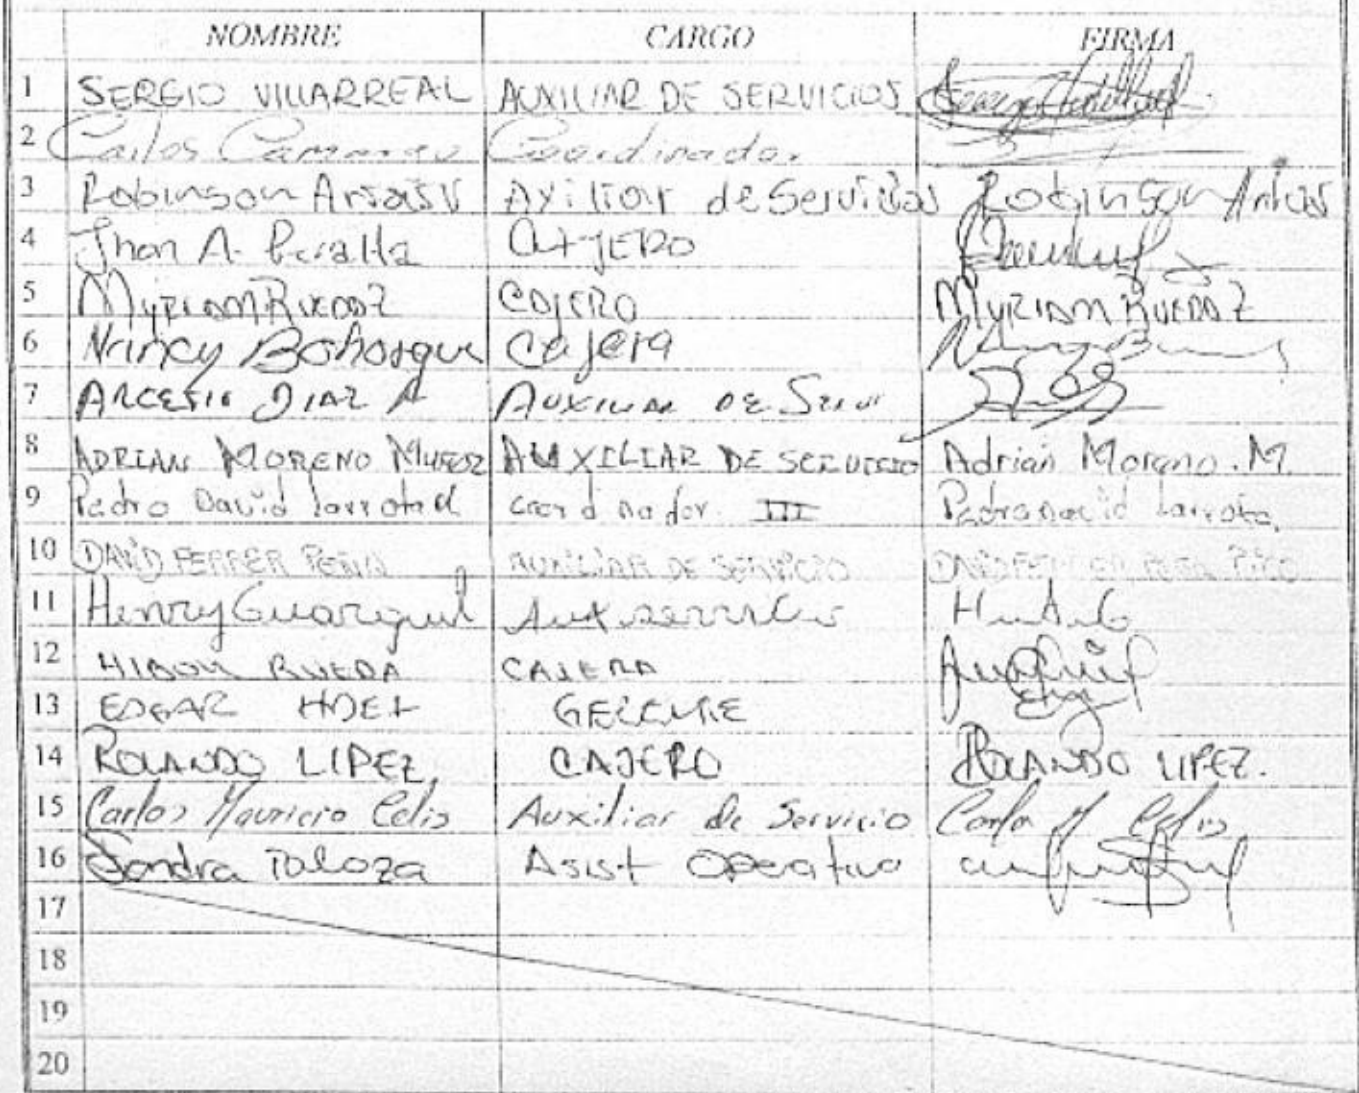 NOMBRE CARGO FIRMA
1 SERGIO VILLARREAL AUXILIAR DE SERVICIOS
2 Carlos Camargo Coordinador
3 Robinson Arias V Axiliar de Servicios Robinson Arias
4 Jhon A. Peralta CAJERO
5 MYRIAM RUEDA Z CAJERO MYRIAM RUEDA Z
6 Nancy Bohorque Cajera
7 ARCESIO DIAZ A AUXILIAR DE Servi
8 ADRIAN MORENO MUÑOZ AUXILIAR DE SERVICIO Adrian Moreno. M.
9 Pedro David Larrota Coordinador III Pedro David Larrota
10 DAVID FERRER PEÑA AUXILIAR DE SERVICIO
11 Henry Aux servicios
12 RUEDA CAJERA
13 EDGAR GERENTE
14 ROLANDO LIPEZ CAJERO ROLANDO LIPEZ.
15 Carlos Mauricio Celis Auxiliar de Servicio Carlos M Celis
16 Sandra Taloza Asist Operativo
17
18
19
20